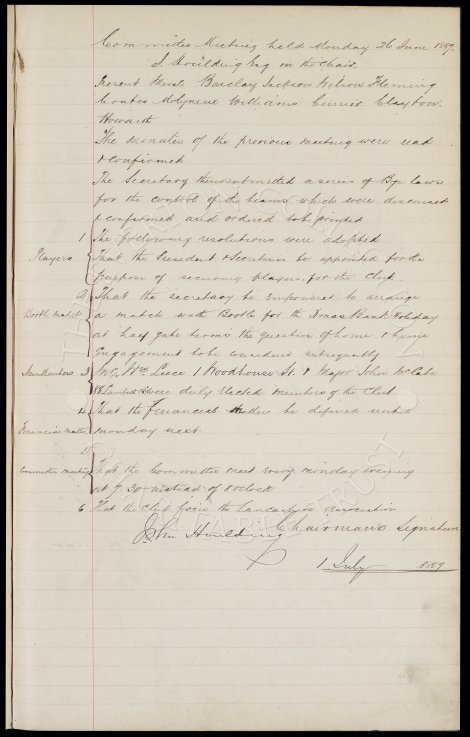 Committee Meeting held Monday 26 June 1889.
J. Houlding Esq in the Chair.
Present Messrs Barclay Jackson Wilson Fleming
Coates Molyneux Williams Currier Clayton
Howarth
The minutes of the previous meeting were read
& confirmed
The Secretary then submitted a series of Bye laws
for the control of the teams which were discussed
& confirmed and ordered to be printed
1 The following resolutions were adopted
Players That the President & Secretary be appointed for the
purpose of securing players for the Club
2 That the secretary be empowered to arrange
Bootle Match a match with Bootle for the Xmas Bank Holiday
at half gate terms the question of home &
Engagement to be considered subsequently
New Members 3 Wm 1 Woodhouse St. & Major John McCabe
were duly elected members of the Club
4 That the Financial matter be deferred until
Financial matter monday next.
5
Committee meetings That the Committee meet every monday evening
at 7.30 instead of 8 oclock
6 That the Club join the Lancashire association
John Houlding Chairmans Signature
1 July 1889